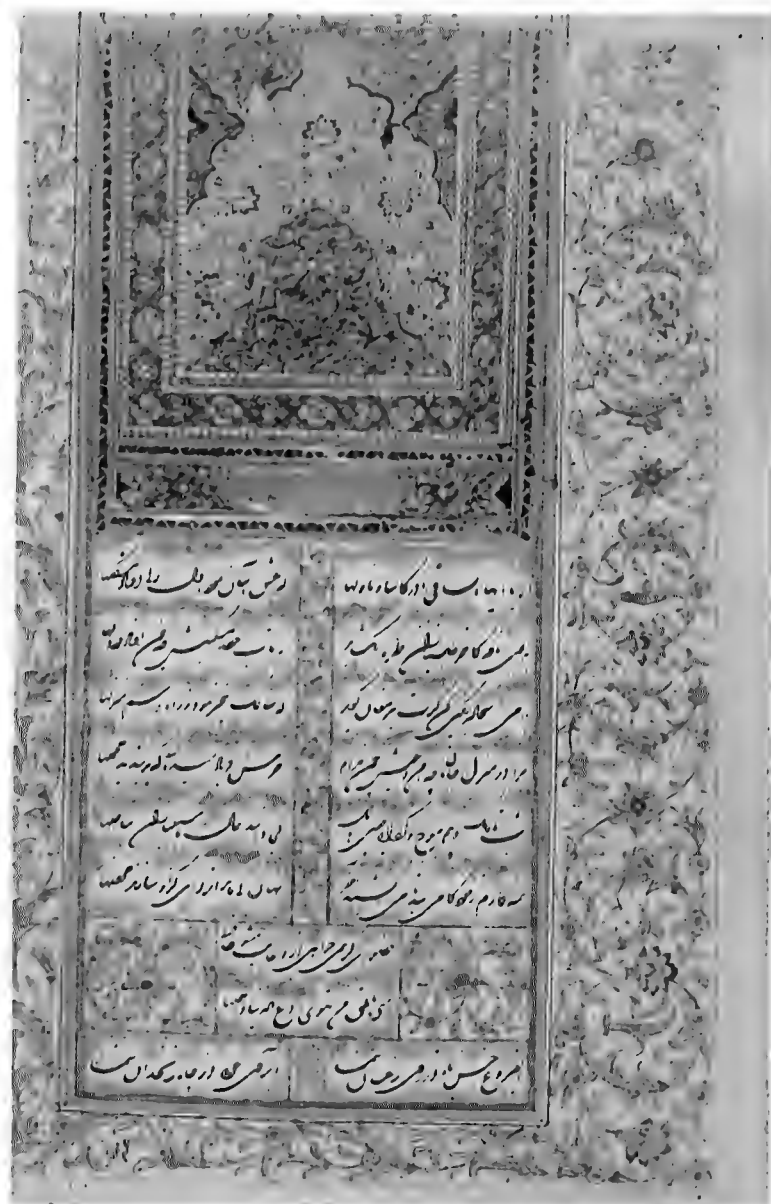 الا یا ایها الساقی ادر کاسا و ناولها
که عشق آسان نمود اول ولی افتاد مشکلها
ببوی نافه کاخر صبا زان طره بگشاید
ز تاب جعد مشکینش چه خون افتاد در دلها
بمی سجاده رنگین کن گرت پیر مغان گوید
که سالک بیخبر نبود ز راه و رسم منزلها
مرا در منزل جانان چه امن و عیش چون هر دم
جرس فریاد میدارد که بربندید محملها
شب تاریک و بیم موج و گردابی چنین هایل
کجا دانند حال ما سبکباران ساحلها
همه کارم ز خودکامی ببدنامی کشید آخر
نهان کی ماند آن رازی کزو سازند محفلها
حضوری گر همی خواهی ازو غایب مشو حافظ
متی ما تلق من تهوی دع الدنیا و اهملها
ای فروغ ماه حسن از روی رخشان شما
آب روی خوبی از چاه زنخدان شما